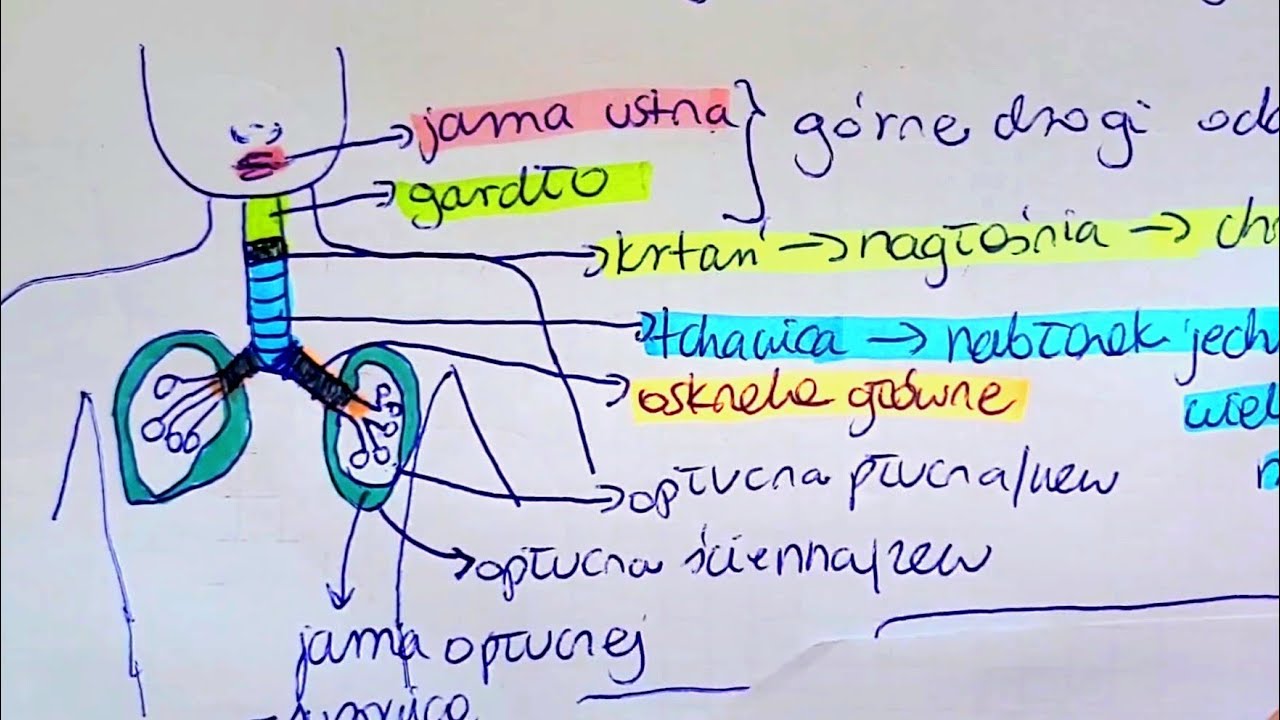 jama ustna } górne drogi odd
gardło
krtań → nagłośnia →
tchawica → nabłonek jech
oskrzela główne
wiel
opłucna płucna/wew
opłucna ścienna/zew
jama opłucnej